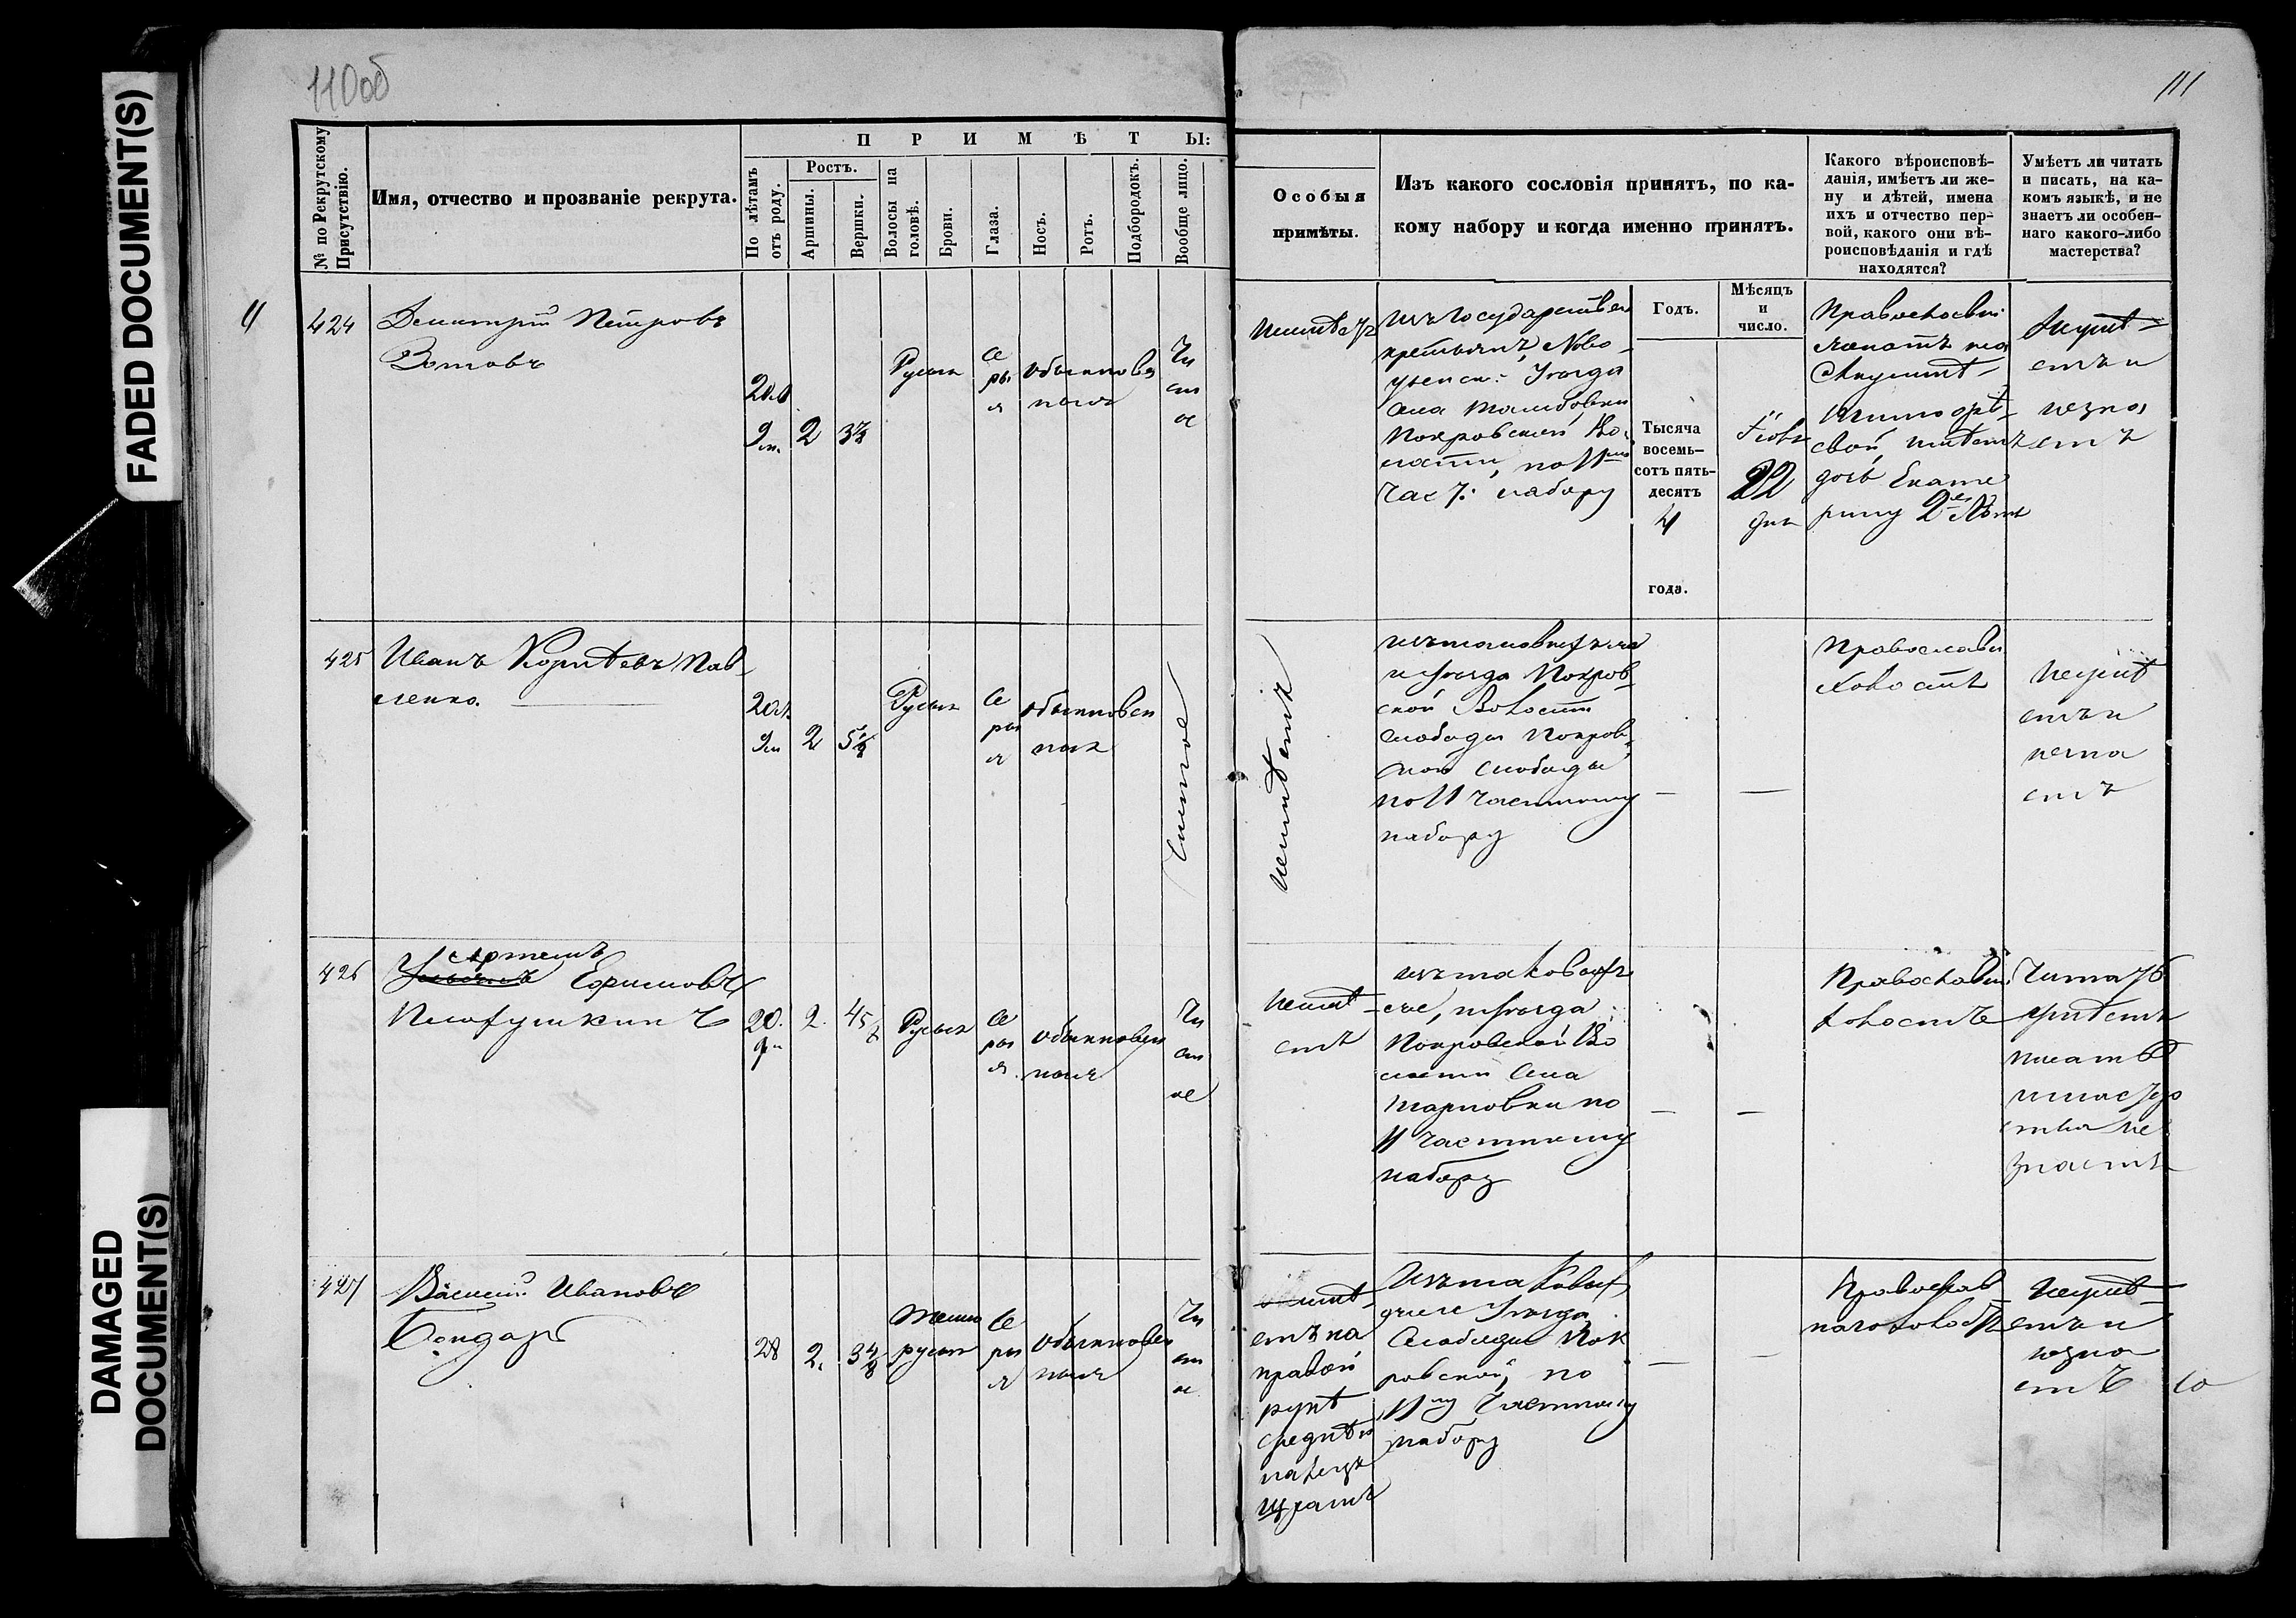 FADED DOCUMENT(S)
DAMAGED
DOCUMENT(S)
110об
111
№ по Рекрутскому
Присутствію.
Имя, отчество и прозваніе рекрута.
ПРИМѢТЫ:
По лѣтамъ
отъ роду.
Ростъ.
Аршины.
Вершки.
Волосы на
головѣ.
Брови.
Глаза.
Носъ.
Ротъ.
Подбородокъ.
Вообще лицо.
Особыя
примѣты.
Изъ какого сословія принятъ, по ка-
кому набору и когда именно принятъ.
Какого вѣроисповѣ-
данія, имѣетъ ли же-
ну и дѣтей, имена
ихъ и отчество пер-
вой, какого они вѣ-
роисповѣданія и гдѣ
находятся?
Умѣетъ ли читать
и писать, на ка-
комъ языкѣ, и не
знаетъ ли особен-
наго какого-либо
мастерства?
424
Димитрій Петровъ
Зотовъ
9м.
2
Русыя
Се
ры
я
обыкновен
ныя
Чи
ст
ое
крестьянъ, Ново-
узенск: Уезда
Покровской Во-
лости, по 11му
Час: набору
Годъ.
Мѣсяцъ
и
число.
Тысяча
восемь-
сотъ пять-
десятъ
4
года.
22
дня
Православный
женатъ на
Акулинѣ
свой, имѣетъ
дочь Екате
рину 2е лѣтъ
Неумѣ-
етъ и
незна
етъ
425
Иванъ Корнѣевъ Пав-
ленко.
9м
2
Русыя
Се
ры
я
обыкновен
ныя
Чистое
неимѣетъ
изъ таковыхъ же
и уезда Покров-
ской Волости
слободы Покров-
ской слободы
по 11 частному
набору
—
—
Православн
холостъ
неумѣ
етъ и
незна
етъ
426
Артемъ
Ефимовъ
20.
9м
2.
Русыя
Се
ры
я.
обыкновен
ныя
Чи
ст
ое
неимѣ-
етъ
изъ таковыхъ
же, и уезда
Покровской Во
лости Села
по
11 Частному
набору
—
—
Православный
холостъ
Читать
умѣетъ
писать
и мастер
ства не
знаетъ
427
Василій Ивановъ
Бондарь
28
2.
темно
русыя
Се
ры
я
обыкновен
ныя
Чи
ст
ое
имѣ-
етъ на
правой
рукѣ
среднѣ
палцѣ
шрамъ
Изъ таковыхъ
же Уезда
Слободы Пок
ровской, по
11му Частному
набору
—
—
Православ
наго холостъ
Неумѣ-
етъ и
незна
етъ